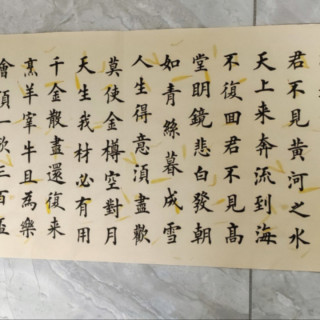 君不見黃河之水
天上來奔流到海
不復回君不見高
堂明鏡悲白發朝
如青絲暮成雪
人生得意湏盡歡
莫使金樽空對月
天生我材必有用
千金散盡還復來
烹羊宰牛且為樂
會湏一飲三百